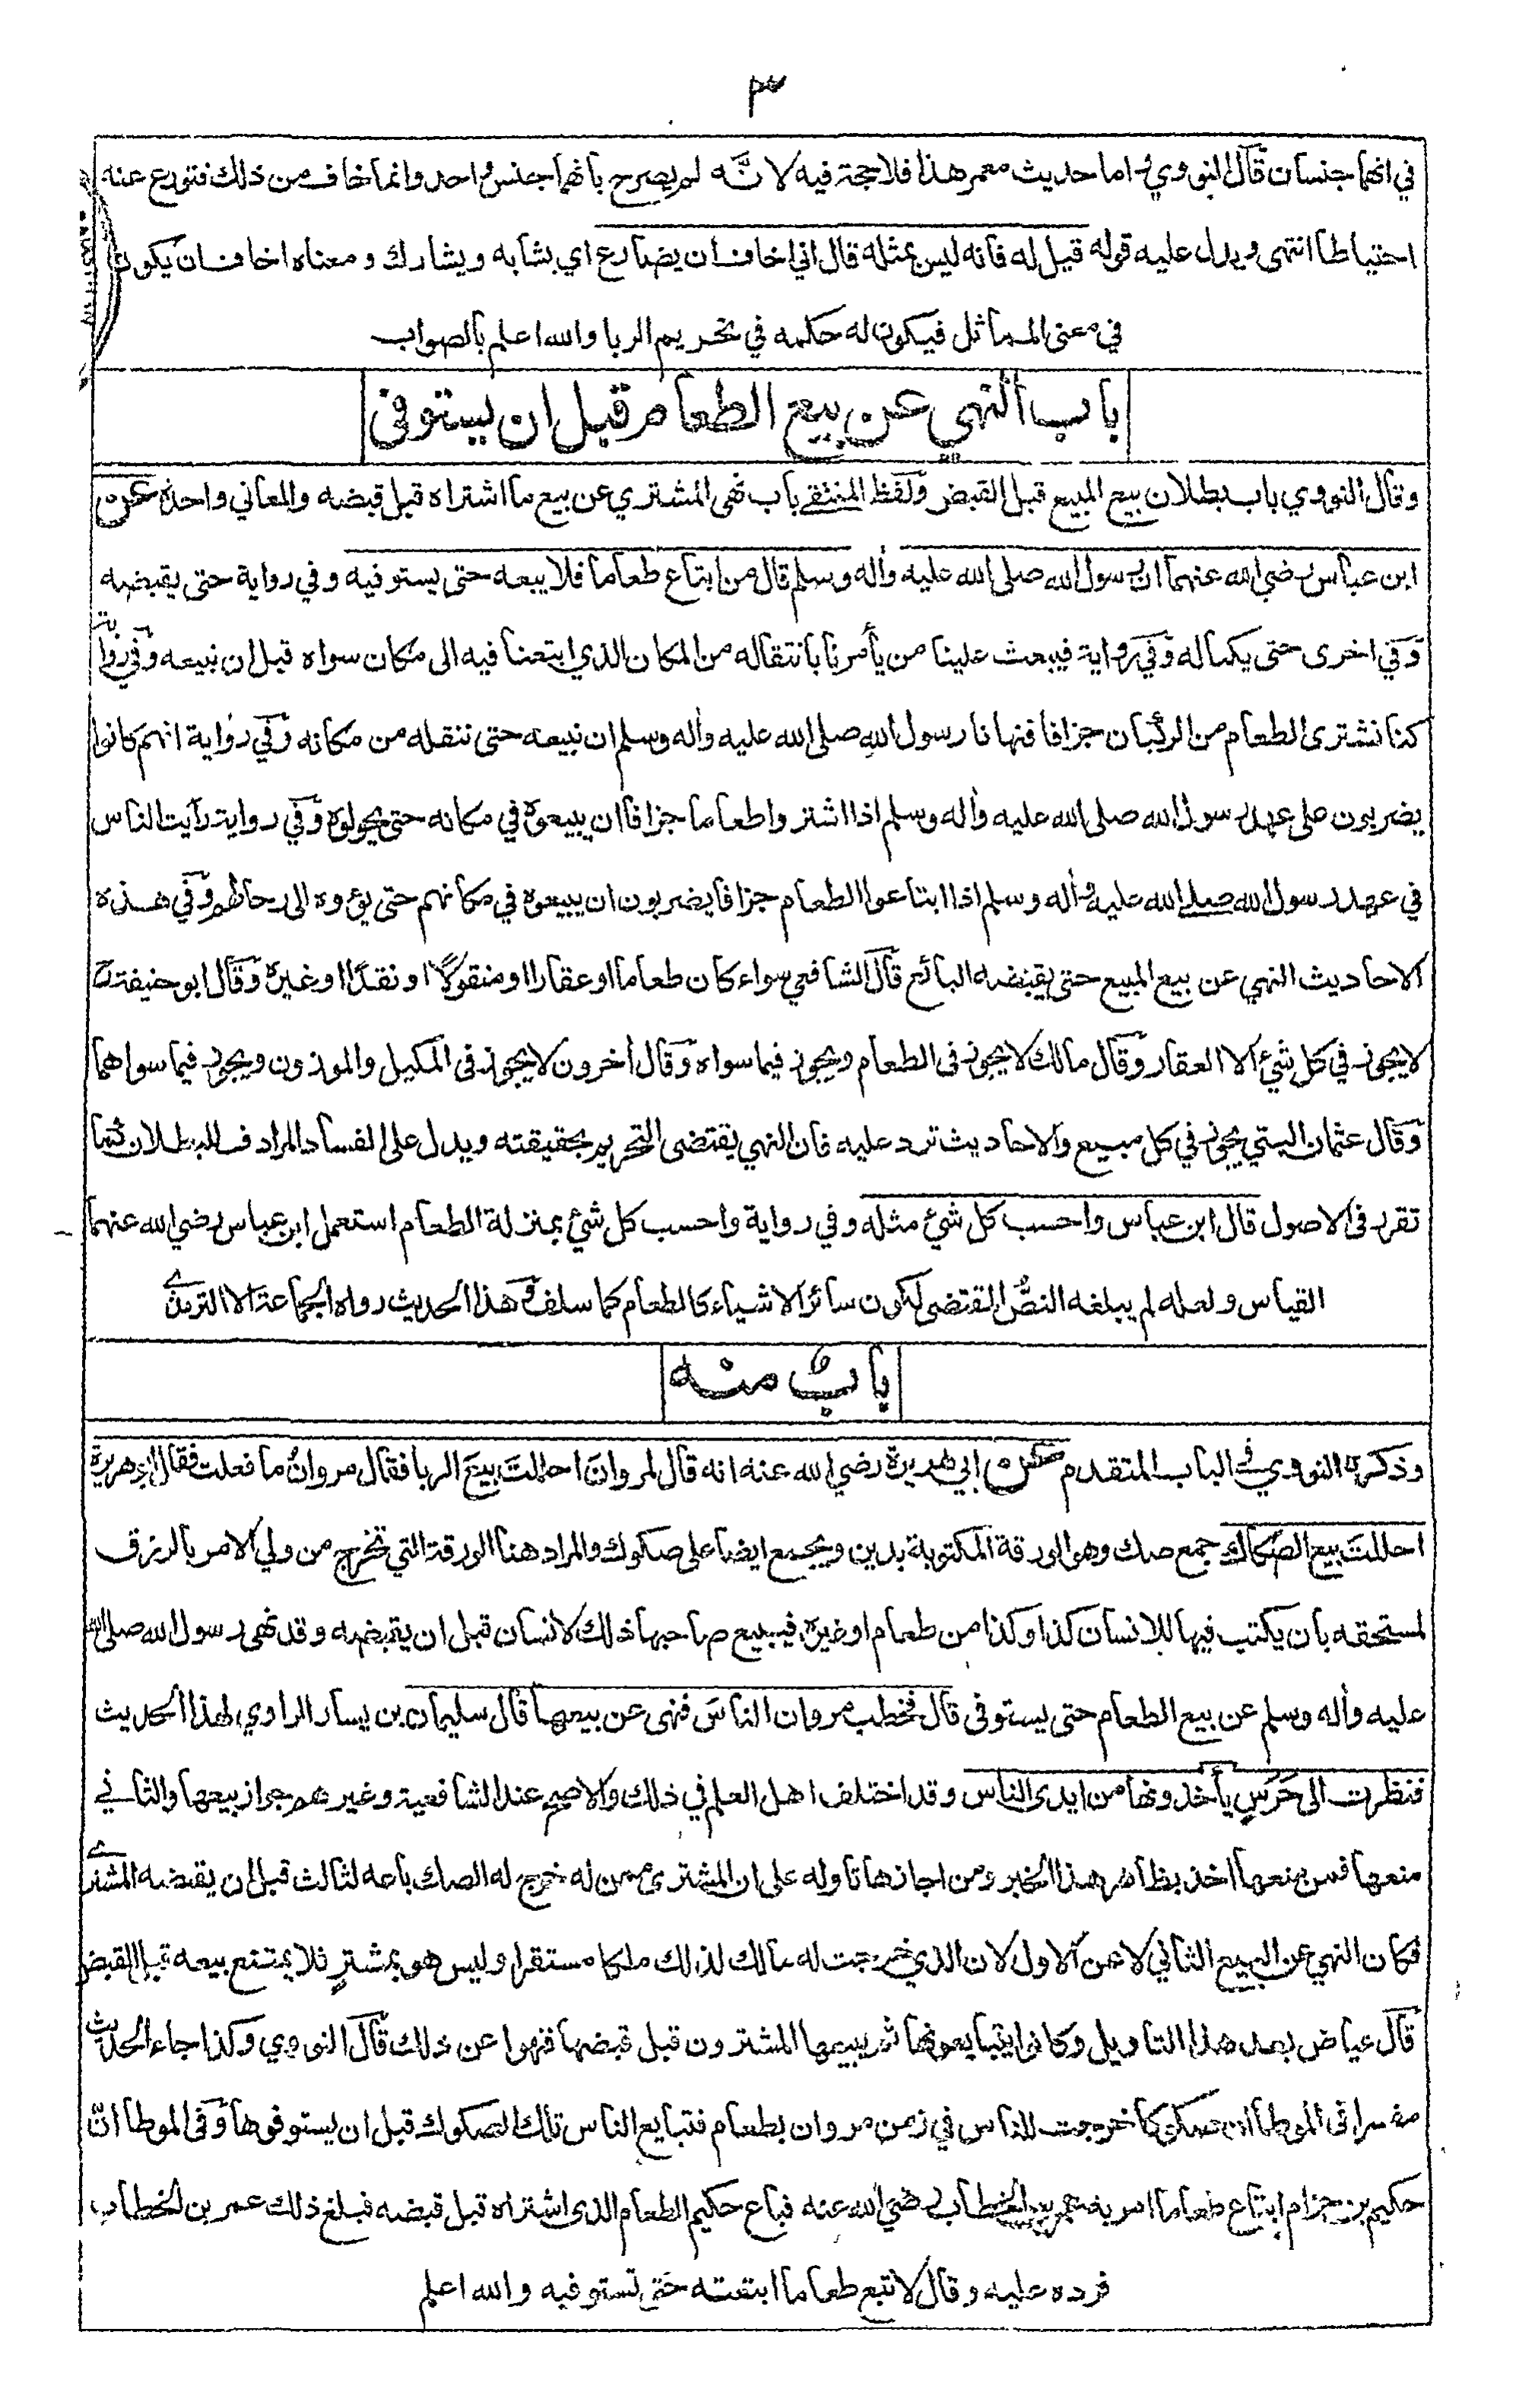 ٣
في انهما جنسان قال النووي اما حديث معمر هذا فلا حجة فيه لانَّه لم يصرح بانهما جنس واحد وانما خاف من ذلك فتورع عنه
احتياطا انتهى ويدل عليه قوله قيل له فانه ليس بمثله قال اني اخاف ان يضارع اي يشابه ويشارك ومعناه اخاف ان يكون
في معنى المماثل فيكون له حكمه في تحريم الربا والله اعلم بالصواب
باب النهى عن بيع الطعام قبل ان يستوفى
وقال النووي باب بطلان بيع المبيع قبل القبض ولفظ المنتقى باب نهى المشتري عن بيع ما اشتراه قبل قبضه والمعاني واحدة عن
ابن عباس رضي الله عنهما ان رسول الله صلى الله عليه وأله وسلم قال من ابتاع طعاما فلا يبعه حتى يستوفيه وفي رواية حتى يقبضه
وفي اخرى حتى يكتاله وفي رواية فيبعث علينا من يأمرنا بانتقاله من المكان الذي ابتعنا فيه الى مكان سواه قبل ان نبيعه وفي رواية
كنا نشترى الطعام من الركبان جزافا فنهانا رسول الله صلى الله عليه وأله وسلم ان نبيعه حتى ننقله من مكانه وفي رواية انهم كانوا
يضربون على عهد رسول الله صلى الله عليه وأله وسلم اذا اشتروا طعاما جزافا ان يبيعوه في مكانه حتى يحولوه وفي رواية رأيت الناس
في عهد رسول الله صلى الله عليه وأله وسلم اذا ابتاعوا الطعام جزافا يضربون ان يبيعوه في مكانهم حتى يؤوه الى رحالهم وفي هذه
الاحاديث النهي عن بيع المبيع حتى يقبضه البائع قال الشافعي سواء كان طعاما او عقارا او منقولًا او نقدًا او غيره وقال ابو حنيفة
لا يجوز في كل شئ الا العقار وقال مالك لا يجوز في الطعام ويجوز فيما سواه وقال أخرون لا يجوز في المكيل والموزون ويجوز فيما سواهما
وقال عثمان البتي يجوز في كل مبيع والاحاديث ترد عليه فان النهي يقتضى التحريم بحقيقته ويدل على الفساد المرادف للبطلان كما
تقرر فى الاصول قال ابن عباس واحسب كل شئ مثله وفي رواية واحسب كل شئ بمنزلة الطعام استعمل ابن عباس رضي الله عنهما
القياس ولعله لم يبلغه النصُّ المقتضى لكون سائر الاشياء كالطعام كما سلف وهذا الحديث رواه الجماعة الا الترمذي
بابٌ منه
وذكره النووي في الباب المتقدم عن ابي هريرة رضي الله عنه انه قال لمروانَ احللتَ بيعَ الربا فقال مروانُ ما فعلت فقال ابو هريرة
احللتَ بيع الصكاك جمع صك وهو الورقة المكتوبة بدين ويجمع ايضا على صكوك والمراد هنا الورقة التي تخرج من ولي الامر بالرزق
لمستحقه بان يكتب فيها للانسان كذا وكذا من طعام او غيره فيبيع صاحبها ذلك لانسان قبل ان يقبضه وقد نهى رسول الله صلى الله
عليه وأله وسلم عن بيع الطعام حتى يستوفى قال فخطب مروان الناسَ فنهى عن بيعها قال سليمان بن يسار الراوي لهذا الحديث
فنظرت الى حَرَسٍ يأخذونها من ايدى الناس وقد اختلف اهل العلم في ذلك والاصح عند الشافعية وغيرهم جواز بيعها والثاني
منعها فمن منعها اخذ بظاهر هذا الخبر ومن اجازها تاوله على ان المشترى ممن له خرج له الصك باعه لثالث قبل ان يقبضه المشترے
فكان النهي عن البيع الثاني لا عن الاول لان الذي خرجت له مالك لذلك ملكا مستقرا وليس هو بمشترٍ فلا يمتنع بيعه قبل القبض
قال عياض بعد هذا التاويل وكانوا يتبايعونها ثم يبيعها المشترون قبل قبضها فنهوا عن ذلك قال النووي وكذا جاء الحديث
مفسرا في الموطأ ان صكوكا خرجت للناس في زمن مروان بطعام فتبايع الناس تلك الصكوك قبل ان يستوفوها وفى الموطا انَّ
حكيم بن حزام ابتاع طعاما امر به عمر بن الخطاب رضي الله عنه فباع حكيم الطعام الذى اشتراه قبل قبضه فبلغ ذلك عمر بن الخطاب
فرده عليه وقال لا تبع طعاما ابتعته حتى تستوفيه والله اعلم